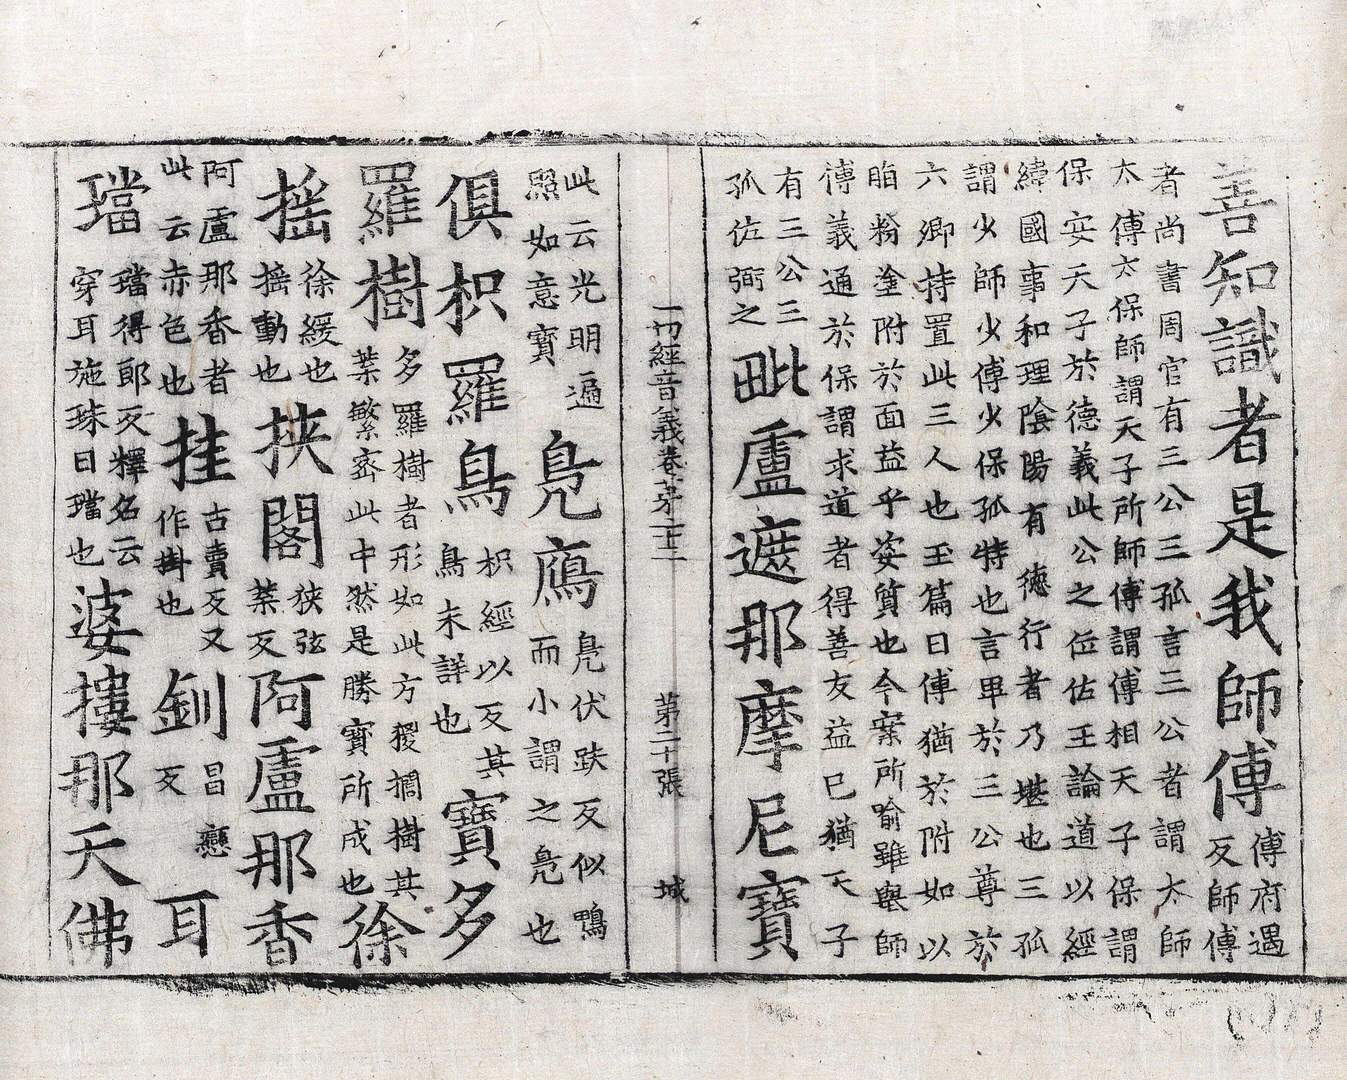 善知識者是我師傅傅府遇
反師傅
者尚書周官有三公三孤言三公者謂太師
太傅太保師謂天子所師傅謂傅相天子保謂
保安天子於德義此公之位佐王論道以經
緯國事和理陰陽有德行者乃堪也三孤
謂少師少傅少保孤特也言卑於三公尊於
六卿特置此三人也玉篇曰傅猶於附如以
脂粉塗附於面益乎姿質也今案所喻雖舉師
傅義通於保謂求道者得善友益已猶天子
有三公三
孤佐弼之毗盧遮那摩尼寶
一切經音義卷苐二十三 苐二十張 城
此云光明遍
照如意寶鳧鴈鳧伏趺反似鴨
而小謂之鳧也
俱枳羅鳥枳經以反其
鳥未詳也寶多
羅樹多羅樹者形如此方椶櫚樹其
葉繁密此中然是勝寶所成也徐
搖徐緩也
搖動也挾閣狹弦
葉反阿盧那香
阿盧那香者
此云赤色也挂古賣反又
作掛也釧昌戀
反耳
璫璫得郎反釋名云
穿耳施珠曰璫也婆樓那天佛